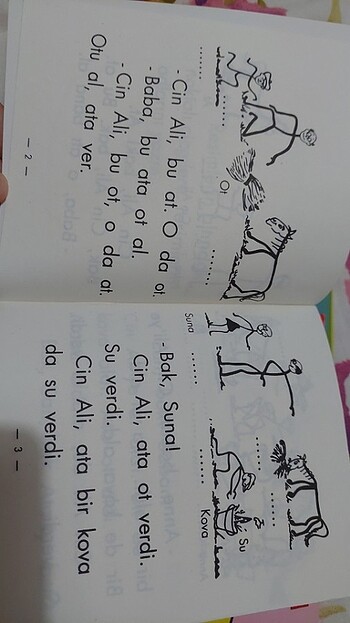 ........
......
Ot
.......
- Cin Ali, bu at. O da ot.
- Baba, bu ata ot al.
- Cin Ali, bu ot, o da at.
Otu al, ata ver.
— 2 —
Suna
......
......
......
......
Su
Kova
- Bak, Suna!
Cin Ali, ata ot verdi.
Su verdi.
Cin Ali, ata bir kova
da su verdi.
— 3 —